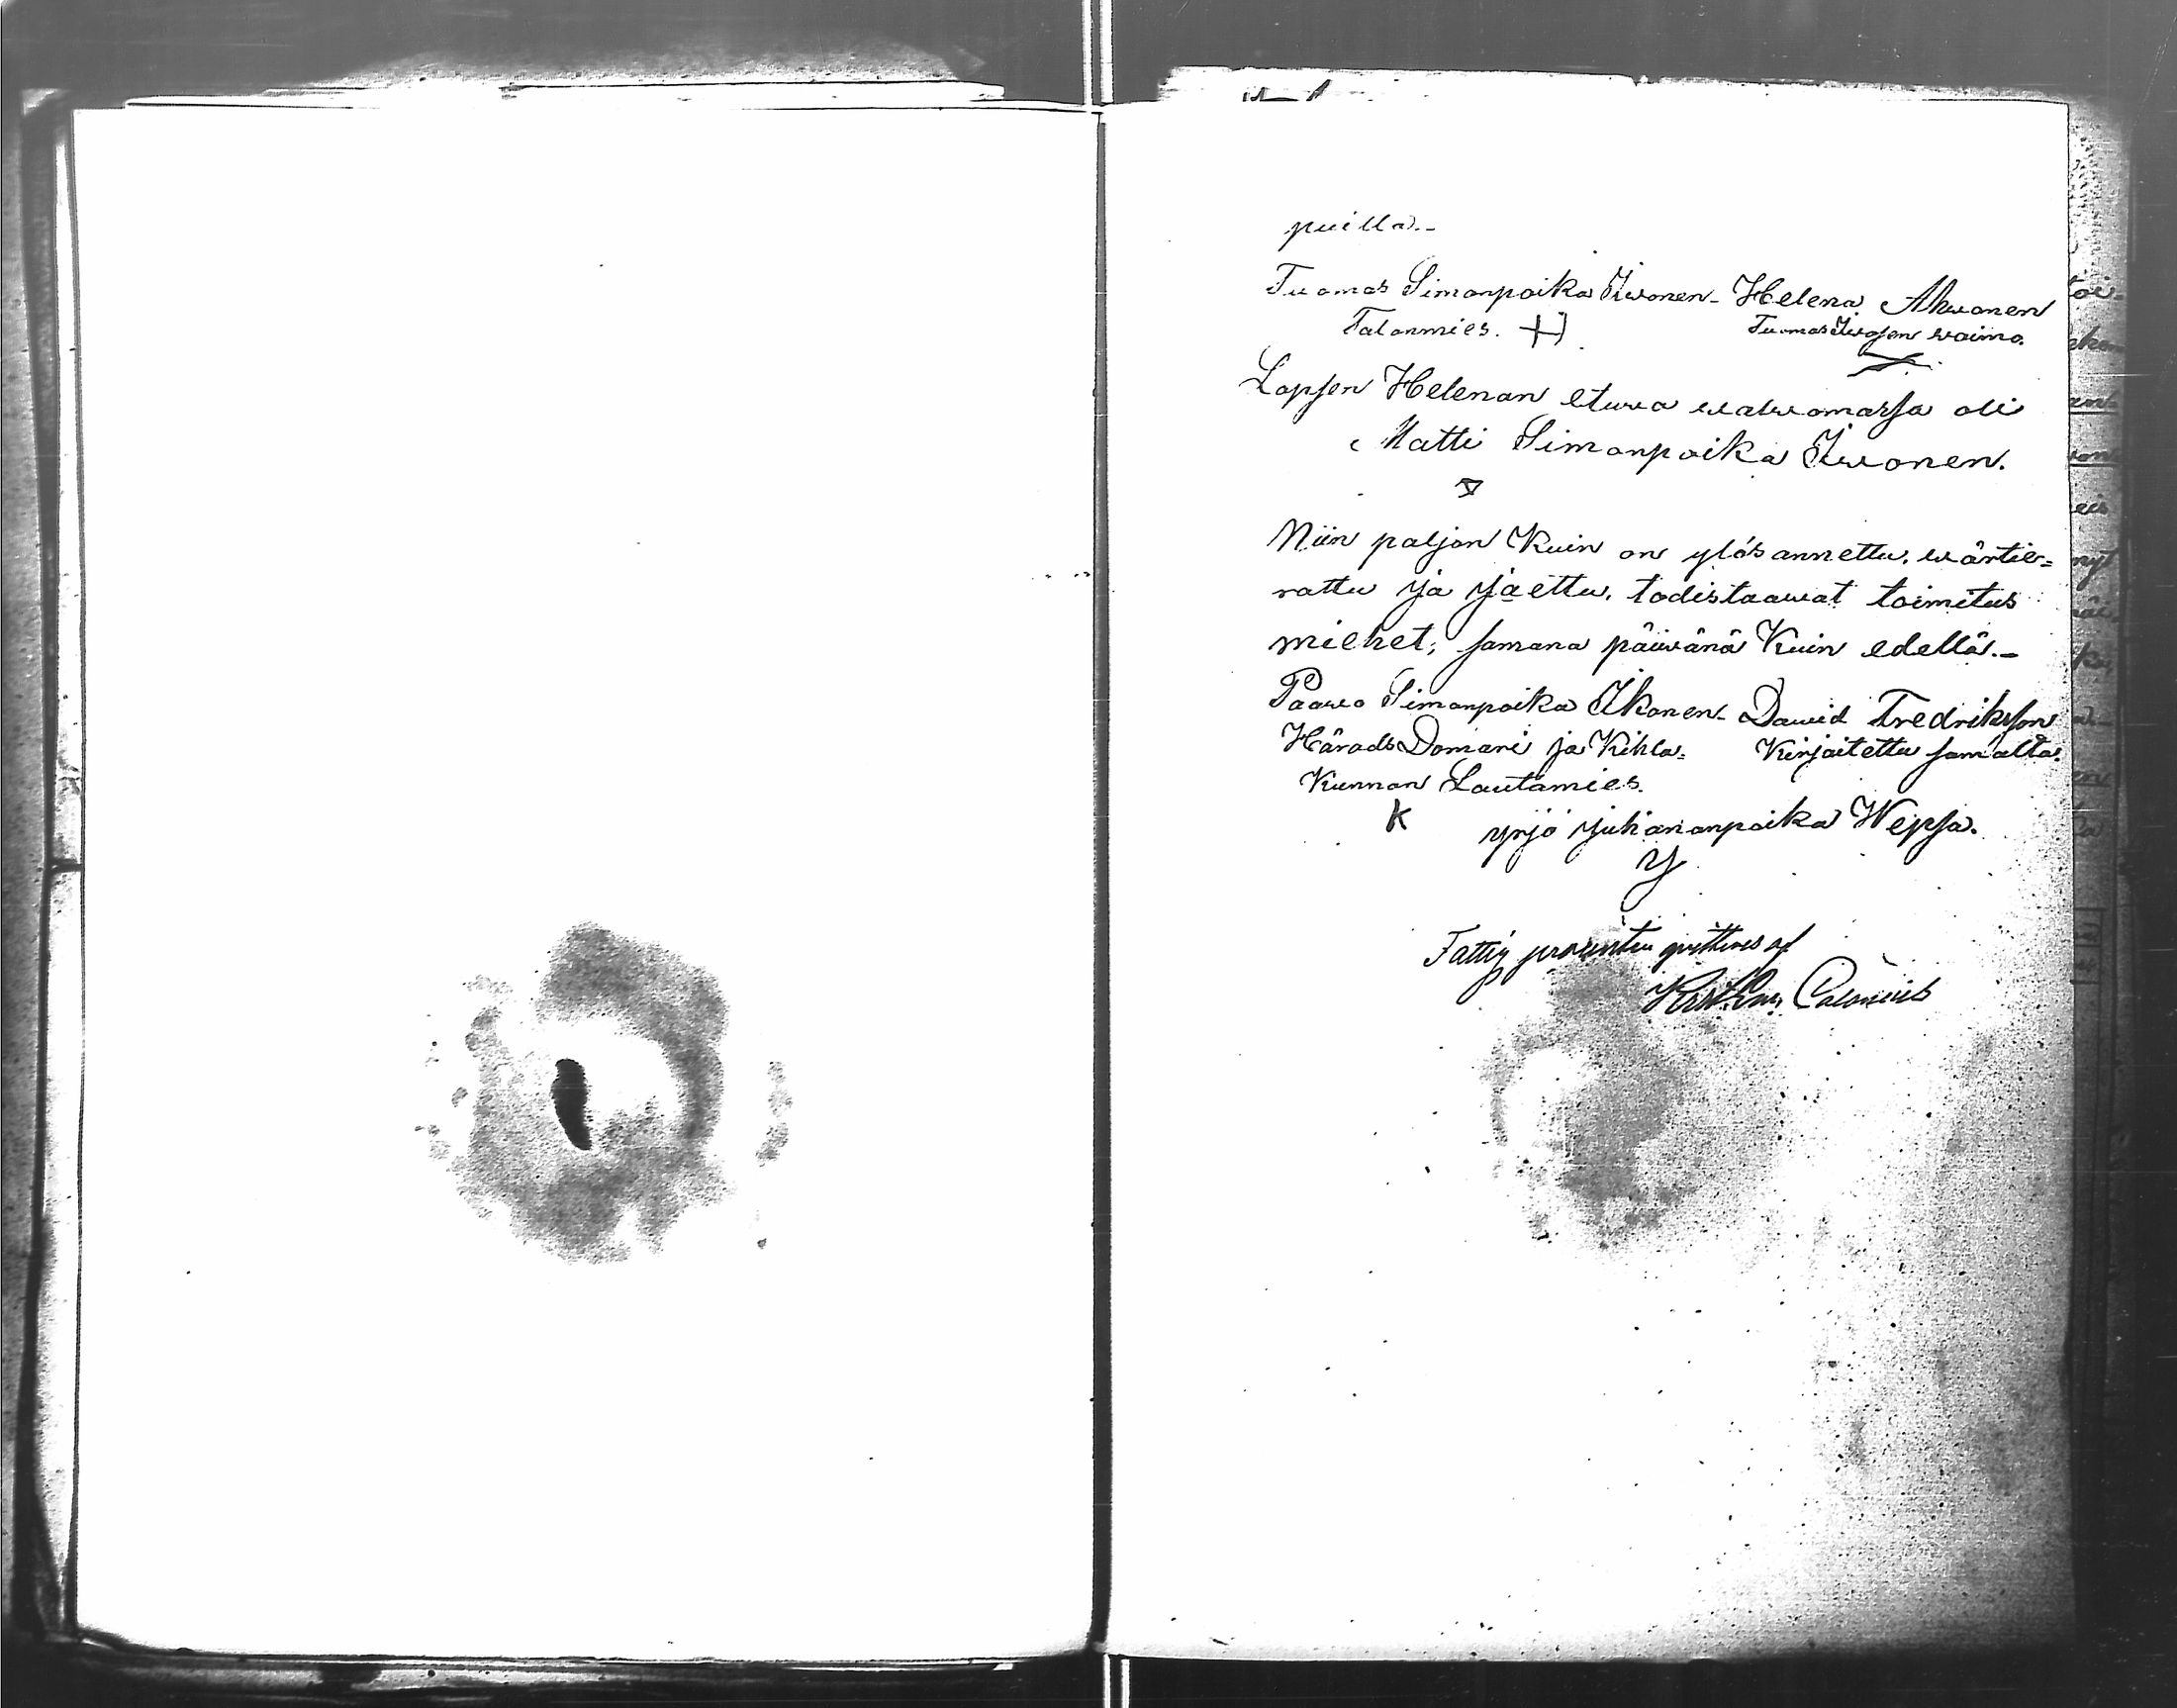 puilla.-
Tuomas Simonpoika Iiwonen- Helena Ahwonen
Talonmies. Tuomas Iiwosen waimo.
Lapsen Helenan etuwa walwomassa oli
Matti Simonpoika Iiwonen.
Niin paljon Kuin on ylös annettu, wärtie=
rattu ja jaettu, todistaawat toimitus
miehet; samana päiwänä Kuin edellä.-
Paawo Simonpoika Ikonen- Dawid Fredriksson
Härads Domari ja Kihla= Kirjoitettu samalta.
Kunnan Lautamies.
K Yrjö Juhananpoika Wepsä.
Y
Fattig procenten qvitteras af
Calonius